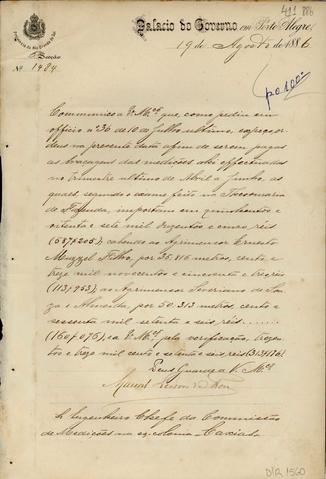 411 886
Palacio do Governo em Porto Alegre,
19 de Agosto de 1886
Provincia do Rio Grande do Sul
Secção
Nº 1484
Communico a V. Mcê que, como pediu em
officio nº 36 de 10 de Julho ultimo, expeço or-
dens na presente data afim de serem pagas
as braçagens das medições ahi effectuadas
no trimestre ultimo de Abril a Junho, as
quaes, segundo o exame feito na Thesouraria
de Fazenda, importam em quinhentos e
oitenta e sete mil duzentos e cinco réis
(587$205), cabendo ao Agrimensor Ernesto
Muzzel Filho, por 35.816 metros, cento e
treze mil novecentos e cincoenta e tres réis
(113$953), ao Agrimensor Severiano de Sou-
za e Almeida, por 50.313 metros, cento e
sessenta mil setenta e seis réis
(160$076), e a V. Mcê pela verificação, trezen-
tos e treze mil cento e setenta e seis réis (313$176)
Deus Guarde a V. Mcê
Sr. Engenheiro Chefe da Commissão
de Medições na ex-colonia Caxias
DIR 1560